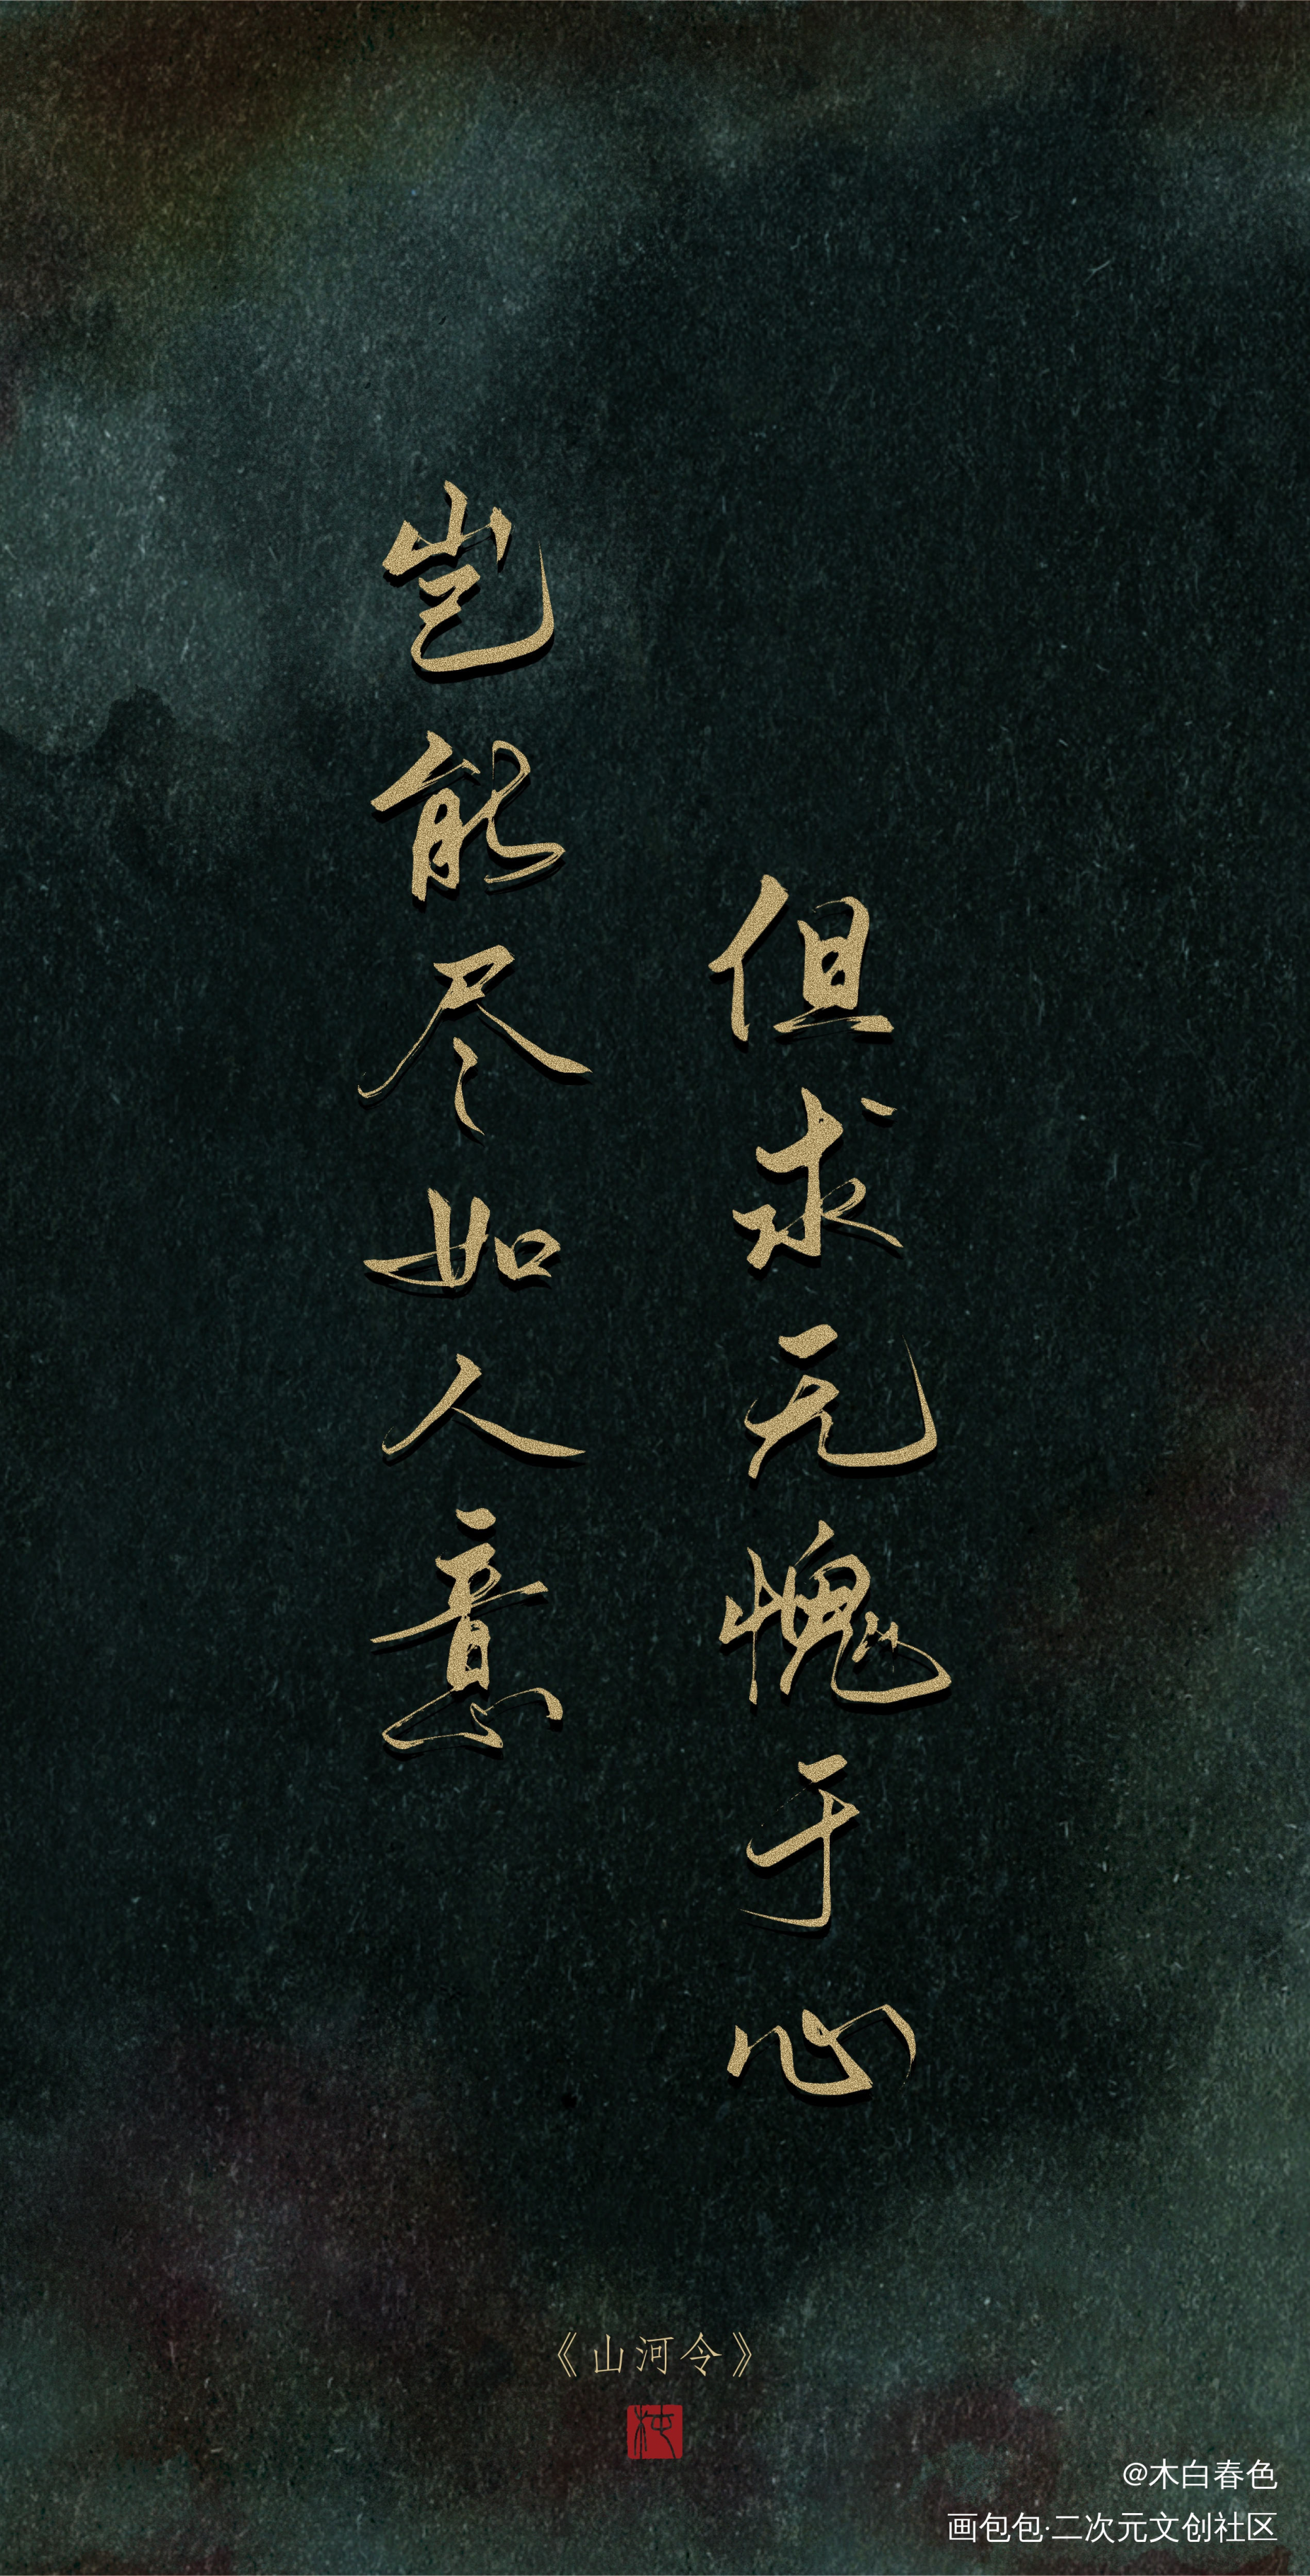 岂能尽如人意
但求无愧于心
《山河令》
@木白春色
画包包·二次元文创社区